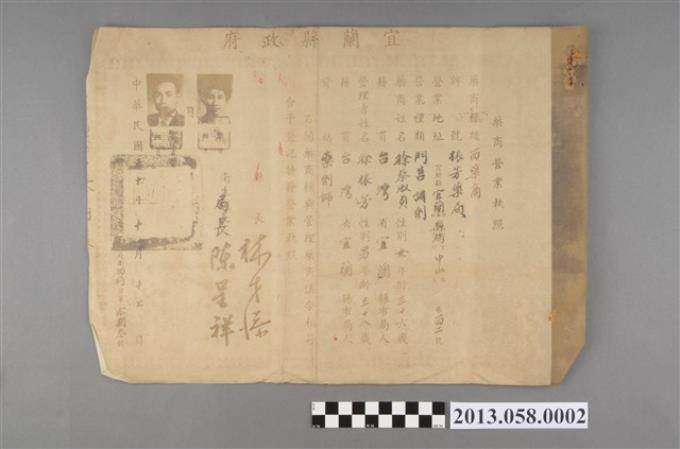 宜蘭縣政府
藥商營業執照
藥商種類 西藥商
牌號 振芳藥局
營業地址 宜蘭縣宜蘭 中山
營業種類 門售調劑
藥商姓名 徐蔡淑貞 性別 女 年齡 三十六歲
籍貫 台灣省宜蘭縣市局人
管理者姓名 徐振芳 性別 男 年齡 三十八歲
籍貫 台灣省宜蘭縣市局人
資格 藥劑師
右開藥商核與管理藥商法令相符
合予登記特發營業執照
縣長 林才添
衛 局長 陳呈祥
中華民國 十 年 十 月 十 日
2013.058.0002